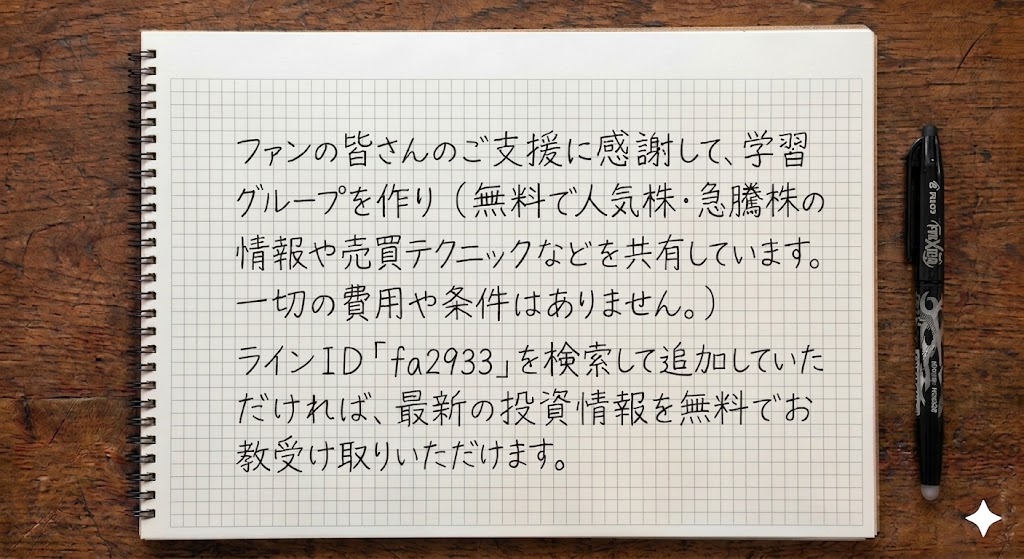 ファンの皆さんのご支援に感謝して、学習
グループを作り（無料で人気株・急騰株の
情報や売買テクニックなどを共有しています。
一切の費用や条件はありません。）
ラインID「fa2933」を検索して追加していた
だければ、最新の投資情報を無料でお
教受け取りいただけます。
PILOT